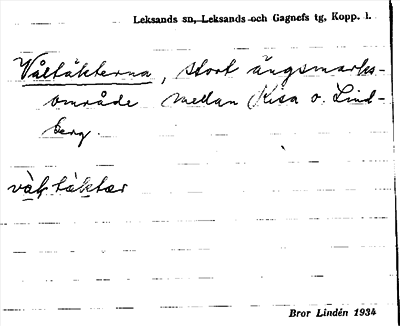 Leksands sn, Leksands och Gagnefs tg, Kopp. l.
Våltäkterna, stort ängsmarks-
område mellan Kisa o. Lind-
berg.
Bror Lindén 1934